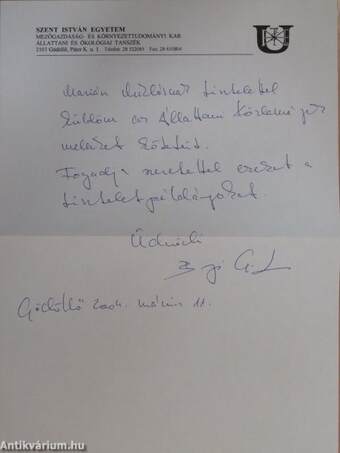 SZENT ISTVÁN EGYETEM
MEZŐGAZDASÁG- ÉS KÖRNYEZETTUDOMÁNYI KAR
ÁLLATTANI ÉS ÖKOLÓGIAI TANSZÉK
2103 Gödöllő, Páter K. u. 1. Telefon: 28 522085 Fax: 28 410804
Marián Miklósnak tisztelettel
küldöm az Állattani Közlemények
kötetét.
Fogadja szeretettel ezeket a
tiszteletpéldányokat.
Üdvözli
Gödöllő 2004. március 11.
Antikvárium.hu